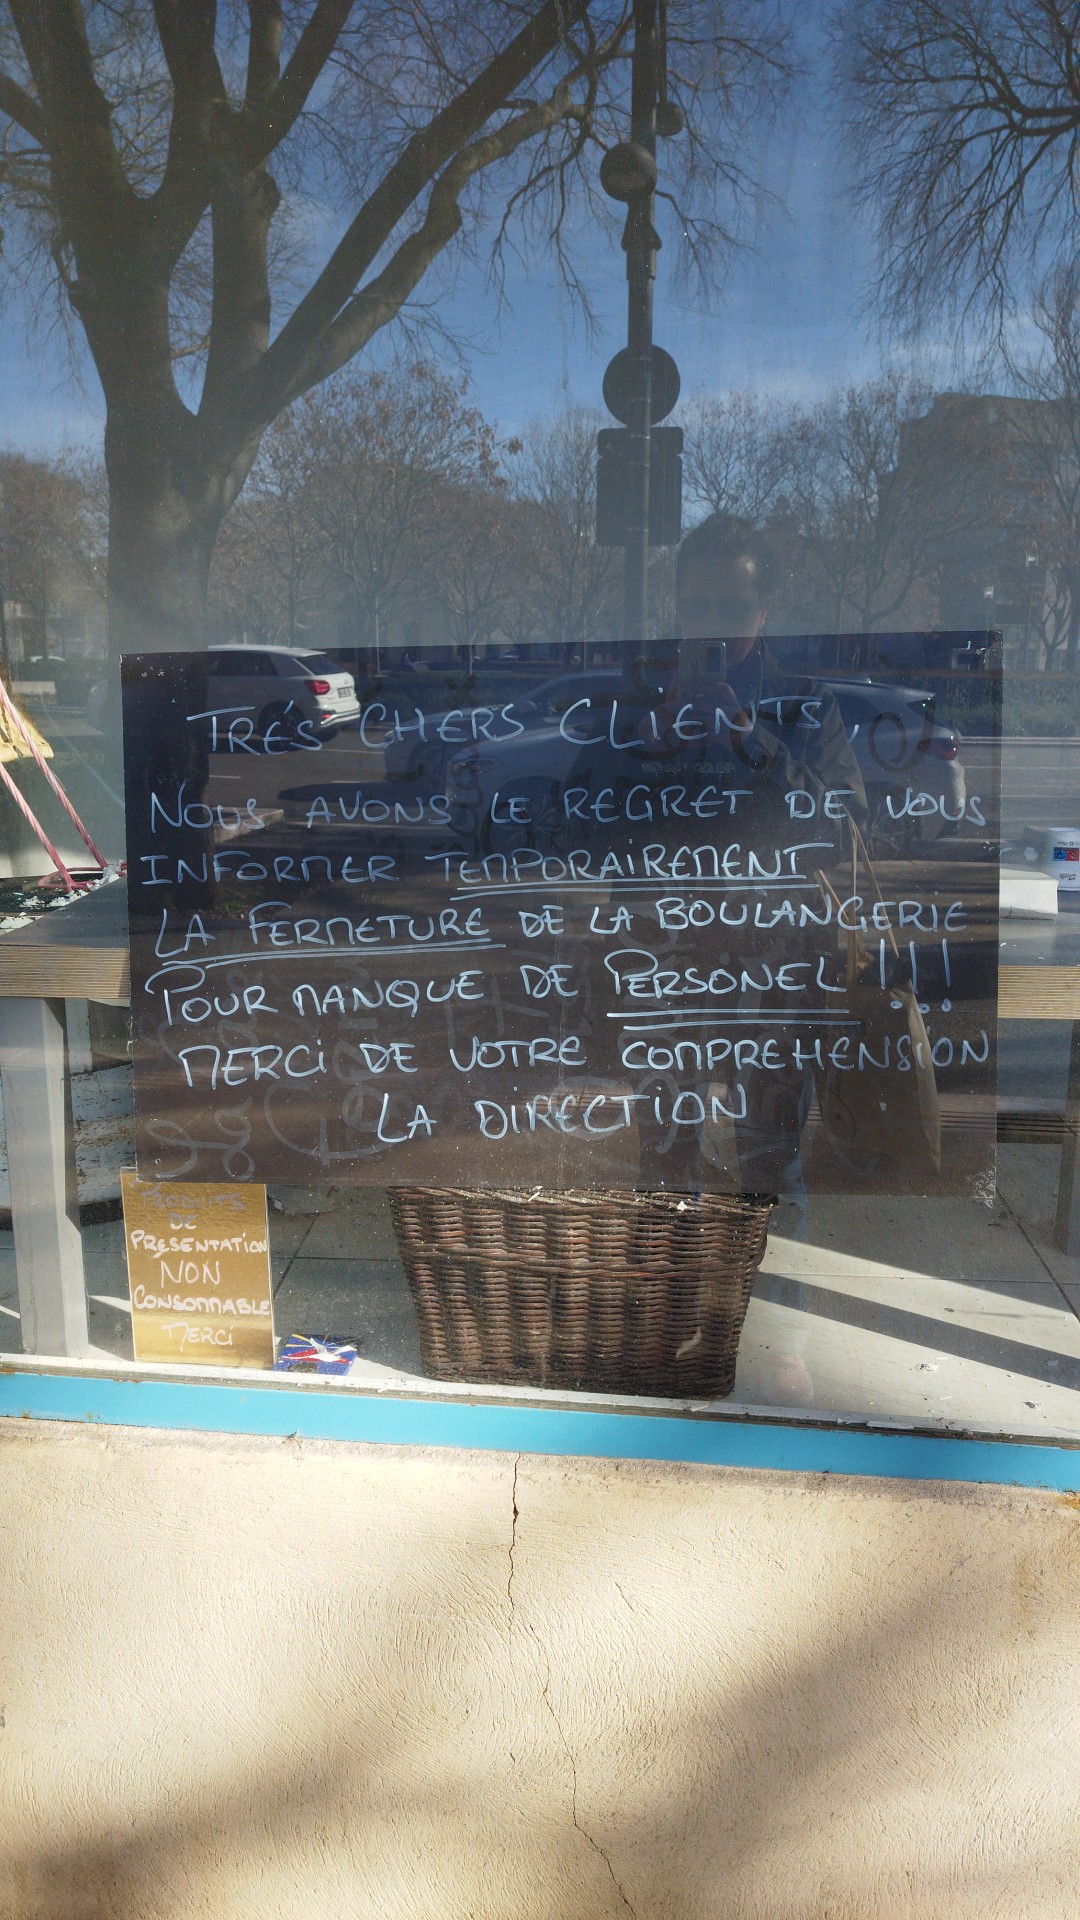 TRÉS CHERS CLIENTS,
NOUS AVONS LE REGRET DE VOUS
INFORMER TEMPORAIREMENT
LA FERMETURE DE LA BOULANGERIE
POUR MANQUE DE PERSONEL !!!
MERCI DE VOTRE COMPREHENSION
LA DIRECTION
PRODUITS
DE
PRESENTATION
NON
CONSOMMABLE
MERCI